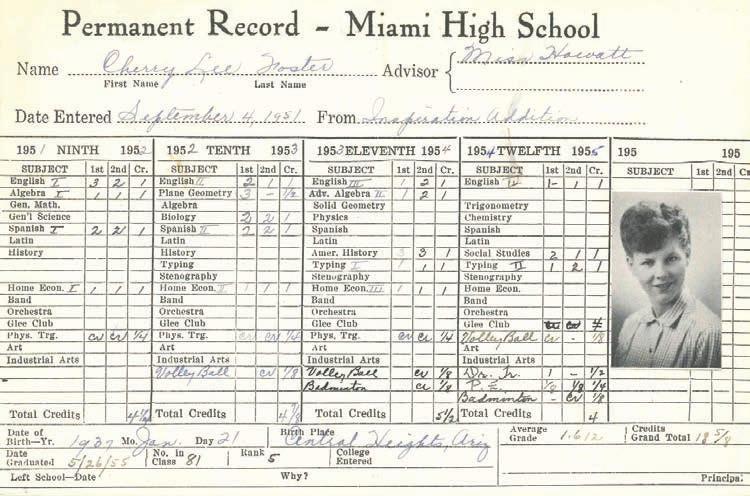 Permanent Record - Miami High School
Name Cherry Lee Foster Advisor { Miss Howatt
First Name Last Name
Date Entered September 4, 1951 From Inspiration Addition
1951 NINTH 1952 1952 TENTH 1953 1953 ELEVENTH 1954 1954 TWELFTH 1955 195 195
SUBJECT 1st 2nd Cr. SUBJECT 1st 2nd Cr. SUBJECT 1st 2nd Cr. SUBJECT 1st 2nd Cr. SUBJECT
English I 3 2 1 English II 2 1 1 English III 1 2 1 English IV 1- 1 1
Algebra I 1 1 1 Plane Geometry 3 - 1/2 Adv. Algebra II 1 2 1
Gen. Math. Algebra Solid Geometry Trigonometry
Gen'l Science Biology 2 2 1 Physics Chemistry
Spanish I 2 2 1 Spanish II 2 1 1 Spanish Spanish
Latin Latin Latin Latin
History History Amer. History 3 3 1 Social Studies 2 1 1
Typing Typing I 1 1 1 Typing II 1 2 1
Stenography Stenography Stenography
Home Econ. I 1 1 1 Home Econ. II 1 1 1 Home Econ. III 1 1 1 Home Econ.
Band Band Band Band
Orchestra Orchestra Orchestra Orchestra
Glee Club Glee Club Glee Club Glee Club
Phys. Trg. cr cr 1/4 Phys. Trg. cr cr 1/4 Phys. Trg. cr cr 1/4 Volley Ball cr - 1/8
Art Art Art Art
Industrial Arts Industrial Arts Industrial Arts Industrial Arts
Volley Ball cr 1/8 Volley Ball cr 1/8 Dr. Tr. 1 - 1/2
Badminton cr 1/8 P.E. 1/8 1/8 1/4
Badminton - cr 1/8
Total Credits 4 1/4 Total Credits 4 7/8 Total Credits 5 1/2 Total Credits 4
Date of Birth—Yr. 1937 Mo. Jan. Day 21 Birth Place Central Heights, Ariz Average Grade 1.612 Credits Grand Total 18 5/8
Date Graduated 5/26/55 No. in Class 81 Rank 5 College Entered
Left School—Date Why? Principal